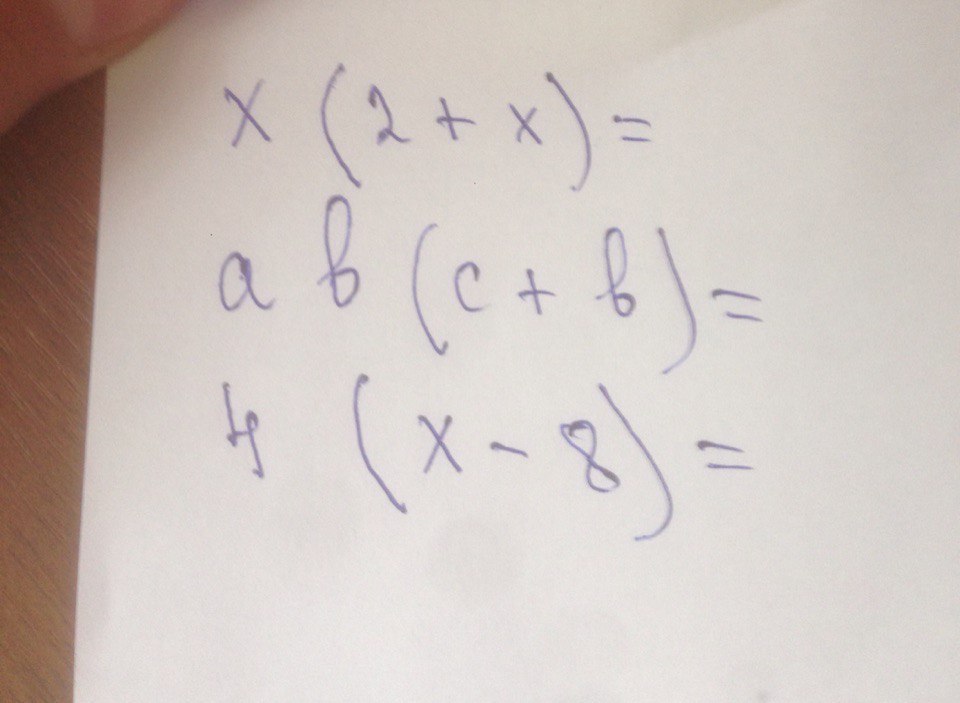 x (2 + x) =
a b (c + b) =
4 (x - 8) =